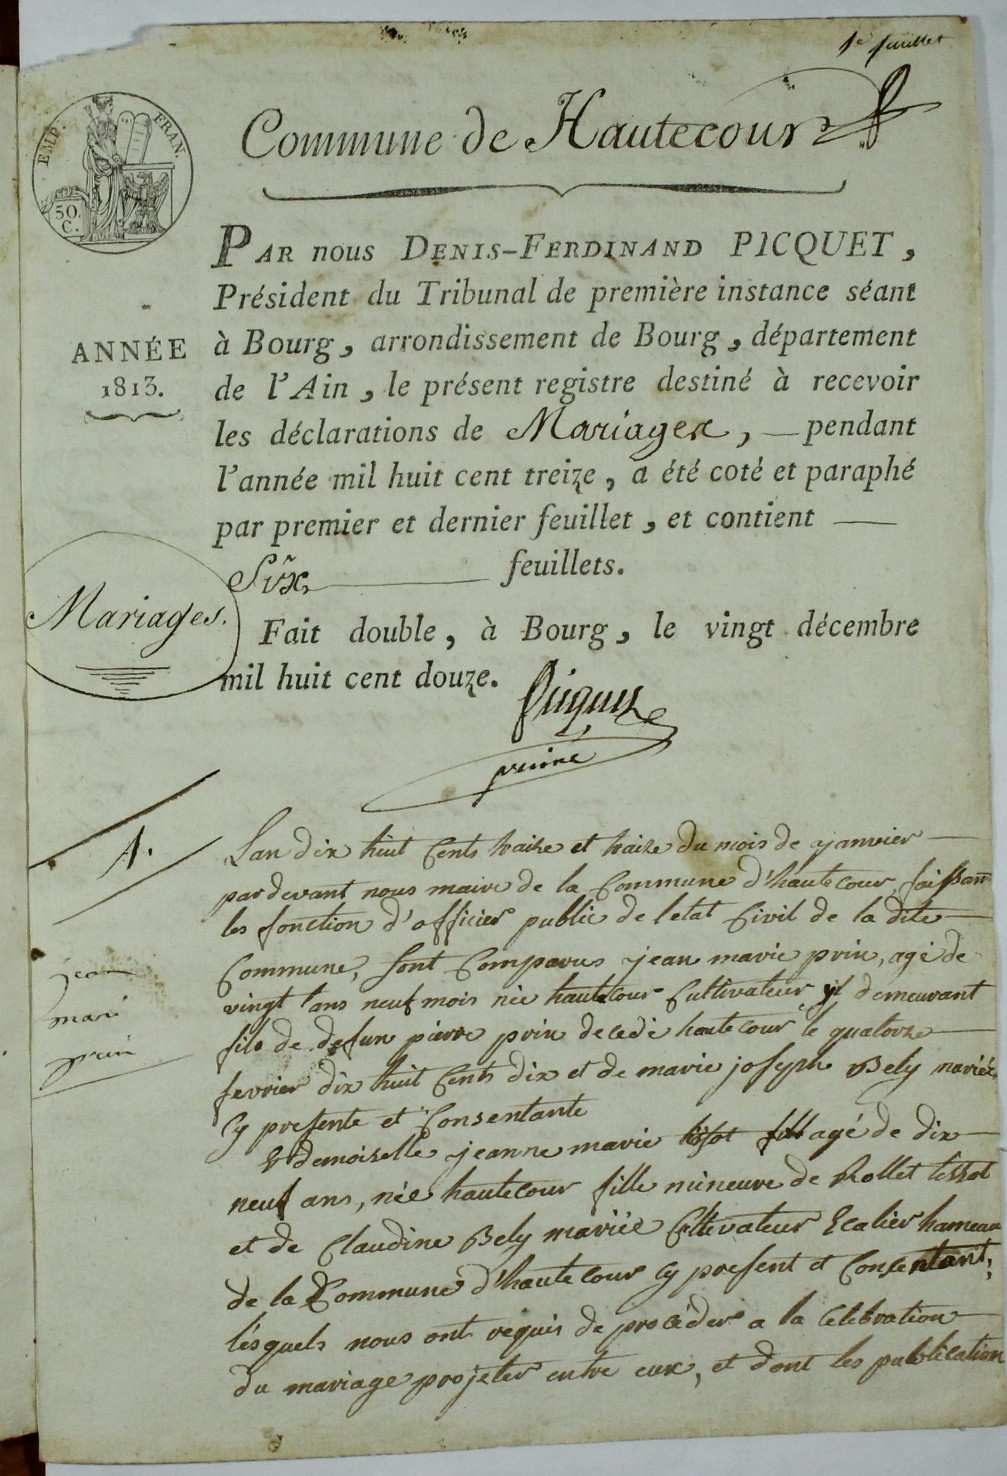 1er feuillet
EMP. FRAN.
50. C.
Commune de Hautecour
PAR nous DENIS-FERDINAND PICQUET,
Président du Tribunal de première instance séant
à Bourg, arrondissement de Bourg, département
de l'Ain, le présent registre destiné à recevoir
les déclarations de Mariages, — pendant
l'année mil huit cent treize, a été coté et paraphé
par premier et dernier feuillet, et contient —
Six — feuillets.
Fait double, à Bourg, le vingt décembre
mil huit cent douze.
ANNÉE
1813.
Mariages.
Picquet
1.
jean
mari
prin
Lan dix huit Cents traize et traize du mois de janvier
pardevant nous maire de la Commune d'hautecour, faissan
les fonction d'officier public de letat Civil de la dite
Commune, sont Comparus jean marie prin, agé de
vingt ans neuf mois née hautecour Cultivateur y demeurant
fils de defun pierre prin decedé hautecour le quatorze
fevrier dix huit Cents dix et de marie joseph Bely mariée
Cy presente et Consentante
Et demoiselle jeanne marie tissot fill agé de dix
neuf ans, née hautecour fille mineure de Rollet tissot
et de Claudine Bely mariée Cltivateur Ecalier hameau
de la Commune d'hautecour Cy present et Consentant,
lesquels nous ont requis de proceder a la Celebration
du mariage projeter entre eux, et dont les publication